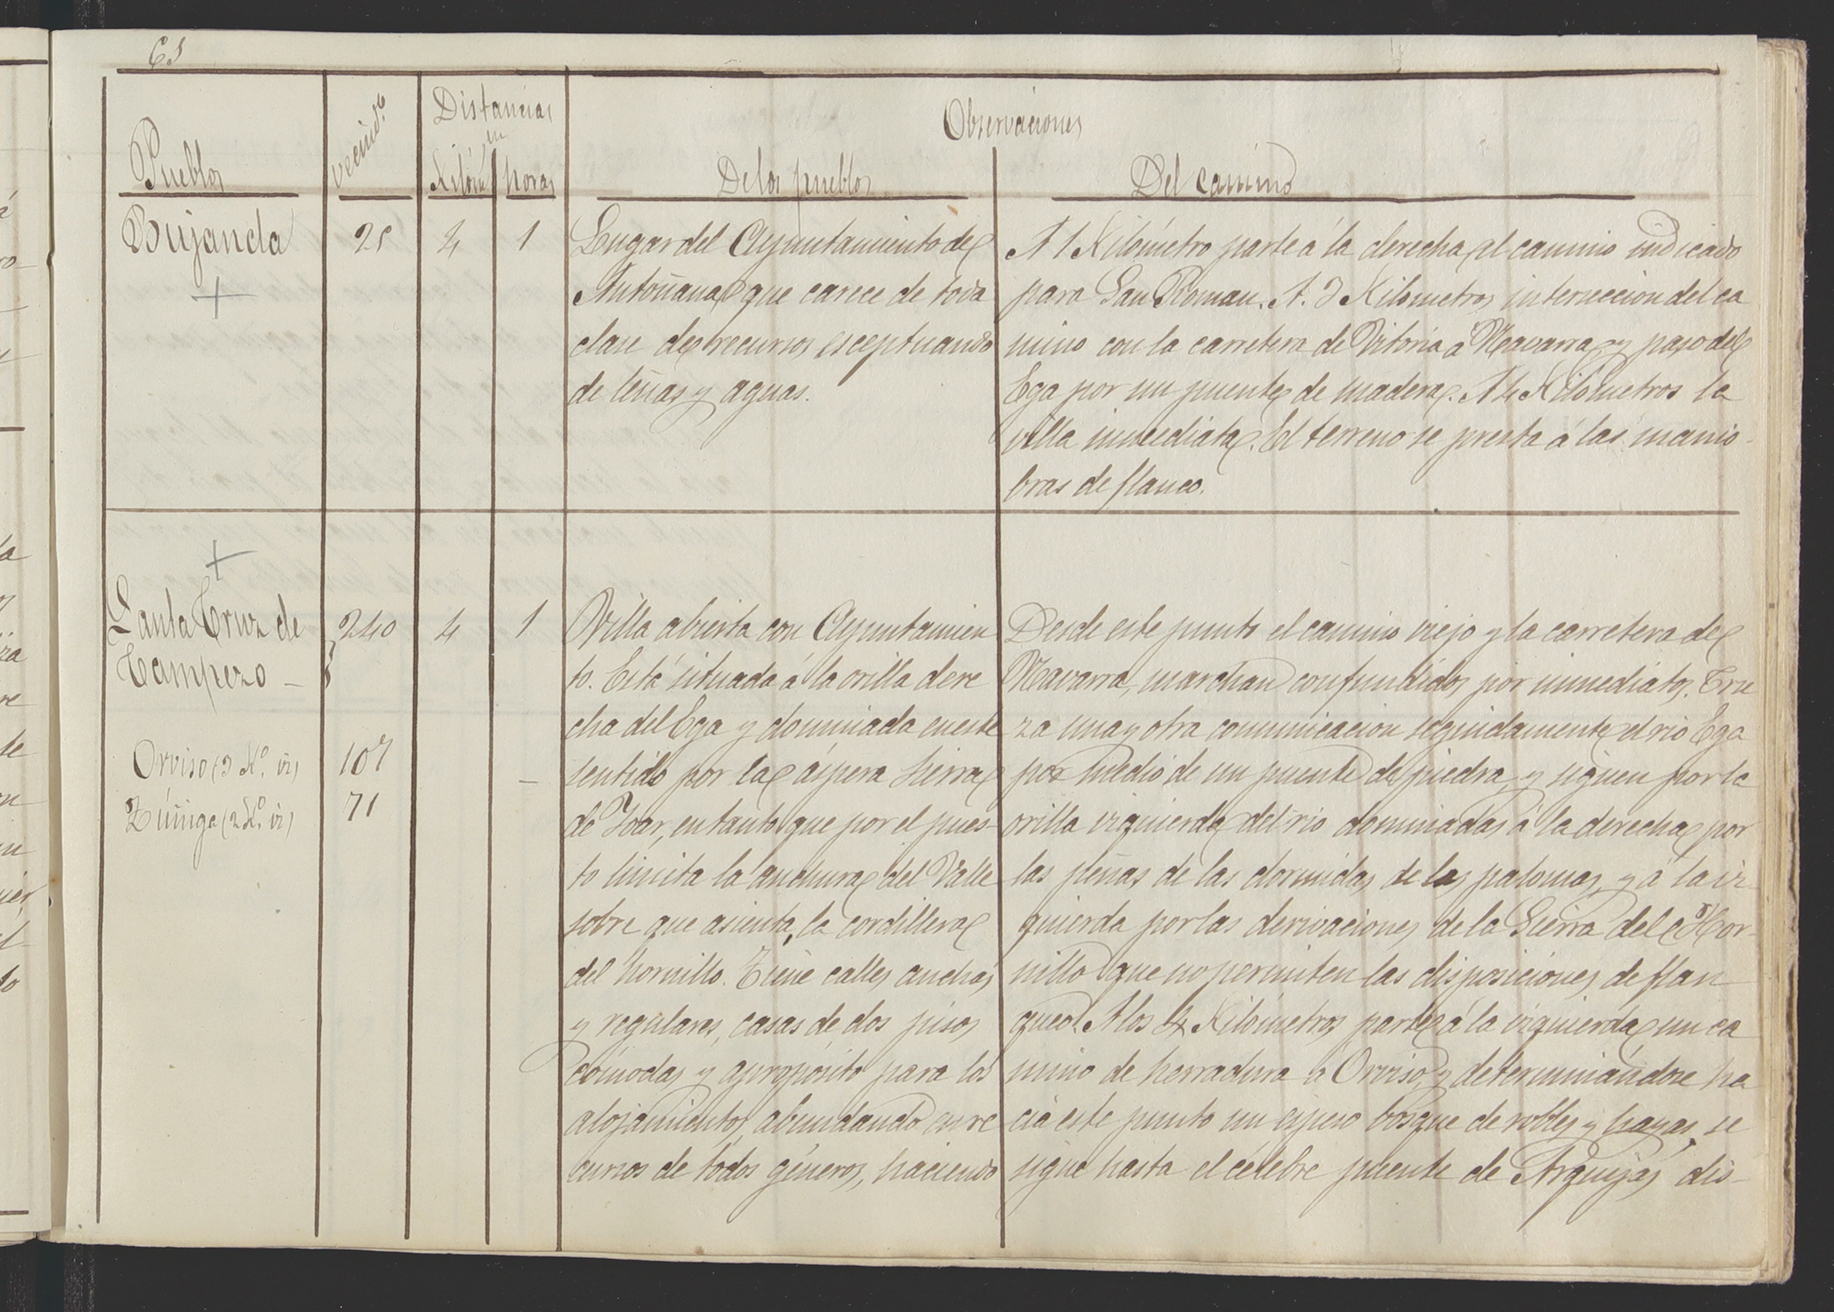 65
Pueblos
vecind.º
Distancias
en
Kilóm
horas
Observaciones
De los pueblos
Del camino
Bujanda
25
4
1
Lugar del Ayuntamiento de
Antoñana que carece de toda
clase de recursos esceptuando
de leñas y aguas.
A 1 Kilómetro parte á la derecha el camino indicado
para San Roman. A 3 Kilometros interseccion del ca
mino con la carretera de Vitoria á Navarra y paso del
Ega por un puente de madera. A 4 Kilómetros la
villa inmediata. El terreno se presta á las manio-
bras de flanco.
Santa Cruz de
Campezo -
240
4
1
Orviso (3 K.º iz)
107
-
Zúñiga (2 K.º iz)
71
Villa abierta con Ayuntamien
to. Está situada á la orilla dere
cha del Ega y dominada en este
sentido por la áspera Sierra
de Yoar, en tanto que por el pues-
to limita la anchura del Valle
sobre que asienta, la cordillera
del hornillo. Tiene calles anchas
y regulares, casas de dos pisos
cómodas y apropósito para los
alojamientos, abundando en re
cursos de todos géneros, haciendo
Desde este punto el camino viejo y la carretera de
Navarra, marchan confundidos por inmediatos. Cru
za una y otra comunicacion seguidamente el rio Ega
por medio de un puente de piedra, y siguen por la
orilla izquierda del rio dominadas á la derecha por
las peñas de las dormidas de las palomas, y á la iz
quierda por las derivaciones de la Sierra del Hor-
nillo que no permiten las disposiciones de flan
queo. A los 4 Kilómetros parte á la izquierda un ca
mino de herradura á Orviso, y determinándose ha
cia este punto un espeso bosque de robles y hayas, se
sigue hasta el célebre puente de Arquijas, dis-